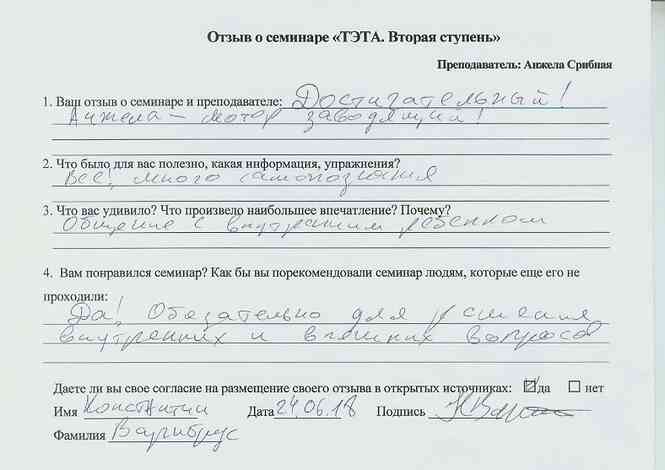 Отзыв о семинаре «ТЭТА. Вторая ступень»
Преподаватель: Анжела Срибная
1. Ваш отзыв о семинаре и преподавателе: Достигательный!
Анжела – мотор заводящий!
2. Что было для вас полезно, какая информация, упражнения?
Все! много самопознания
3. Что вас удивило? Что произвело наибольшее впечатление? Почему?
Общение с внутренним ребенком
4. Вам понравился семинар? Как бы вы порекомендовали семинар людям, которые еще его не
проходили:
Да! Обязательно для решения
внутренних и внешних вопросов
Даете ли вы свое согласие на размещение своего отзыва в открытых источниках: да нет
Имя Константин Дата 24.06.18 Подпись
Фамилия